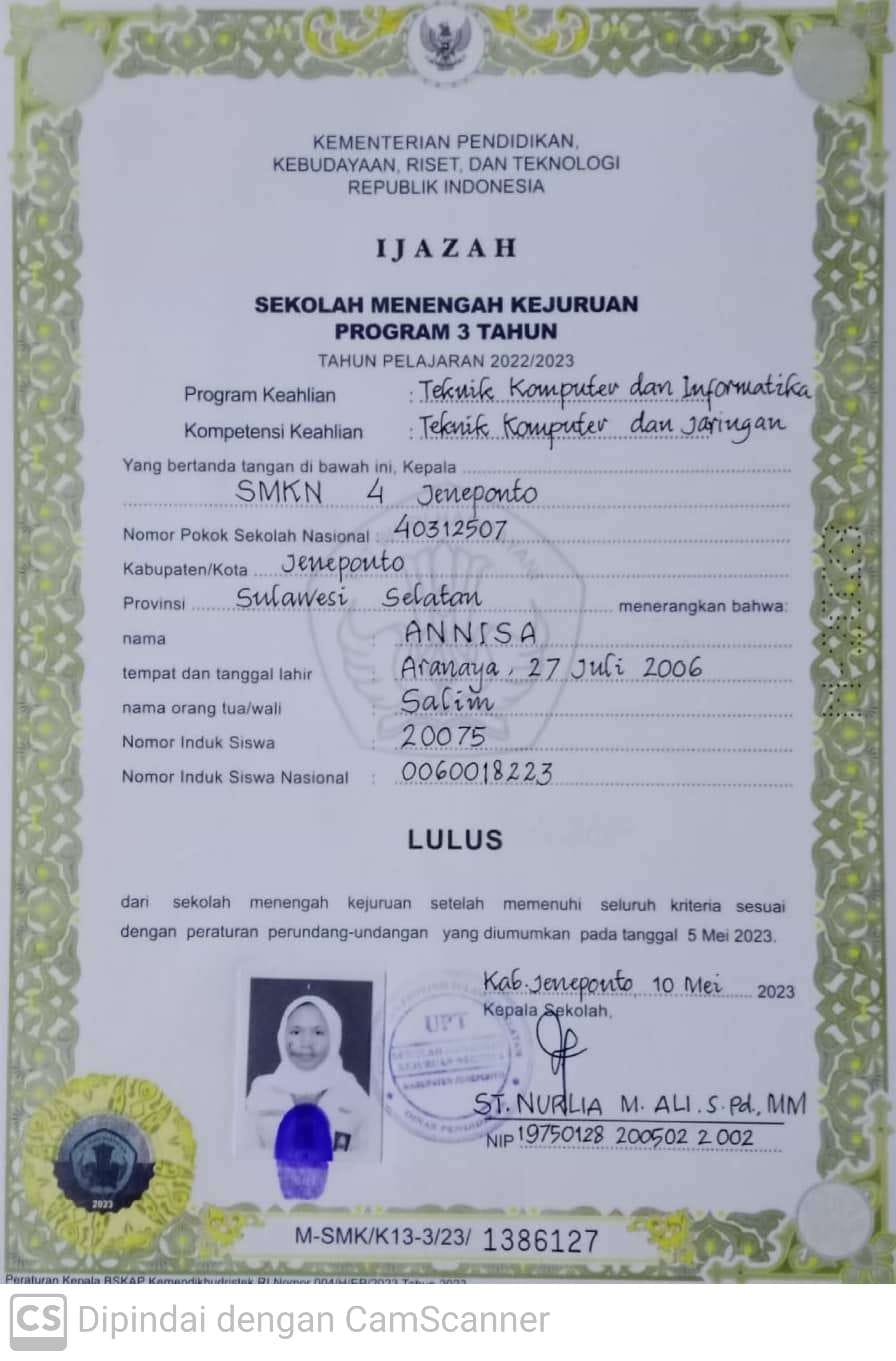 KEMENTERIAN PENDIDIKAN,
KEBUDAYAAN, RISET, DAN TEKNOLOGI
REPUBLIK INDONESIA
IJAZAH
SEKOLAH MENENGAH KEJURUAN
PROGRAM 3 TAHUN
TAHUN PELAJARAN 2022/2023
Program Keahlian : Teknik Komputer dan Informatika
Kompetensi Keahlian : Teknik Komputer dan Jaringan
Yang bertanda tangan di bawah ini, Kepala
SMKN 4 Jeneponto
Nomor Pokok Sekolah Nasional : 40312507
Kabupaten/Kota Jeneponto
Provinsi Sulawesi Selatan menerangkan bahwa:
nama : ANNISA
tempat dan tanggal lahir : Aranaya, 27 Juli 2006
nama orang tua/wali : Salim
Nomor Induk Siswa : 20075
Nomor Induk Siswa Nasional : 0060018223
LULUS
dari sekolah menengah kejuruan setelah memenuhi seluruh kriteria sesuai
dengan peraturan perundang-undangan yang diumumkan pada tanggal 5 Mei 2023.
Kab. Jeneponto, 10 Mei 2023
Kepala Sekolah,
UPT
ST. NURLIA M. ALI. S.Pd., MM
NIP 19750128 200502 2 002
2023
M-SMK/K13-3/23/ 1386127
Peraturan Kepala BSKAP Kemendikbudristek RI Nomor 2023
CS Dipindai dengan CamScanner